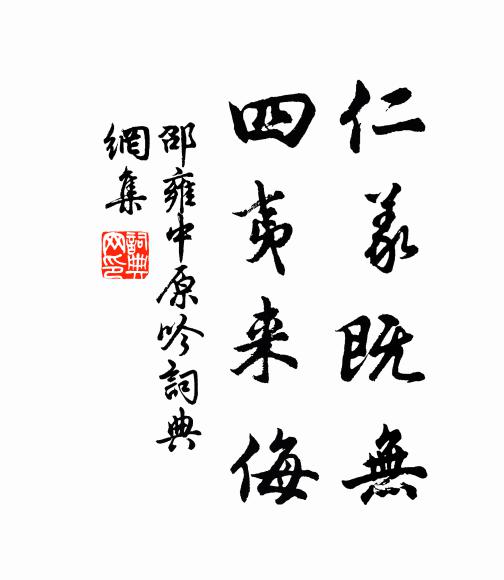 仁義既無
四夷来侮
邵雍中原吟詞典
網集
詞典
网印